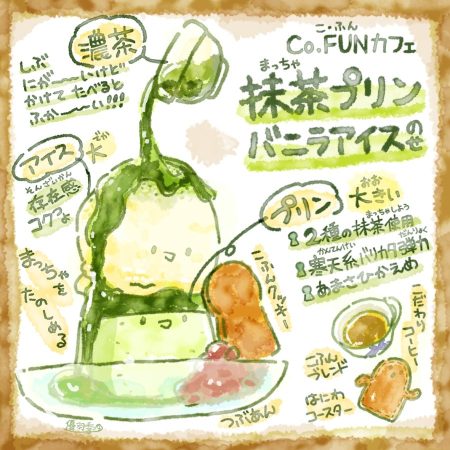 こ・ふん
Co.FUNカフェ
まっちゃ
抹茶プリン
バニラアイスのせ
濃茶
しぶ
にが〜〜いけど
かけてたべると
ふか〜〜い!!!
アイス
でか
大
そんざいかん
存在感
コクうま
まっちゃを
たのしめる
プリン
おお
大きい
まっちゃしよう
2種の抹茶使用
かんてんけい だんりょく
寒天系バリカタ弾力
あまさひかえめ
こふんクッキー
つぶあん
こだわり
コーヒー
こふん
ブレンド
はにわ
コースター